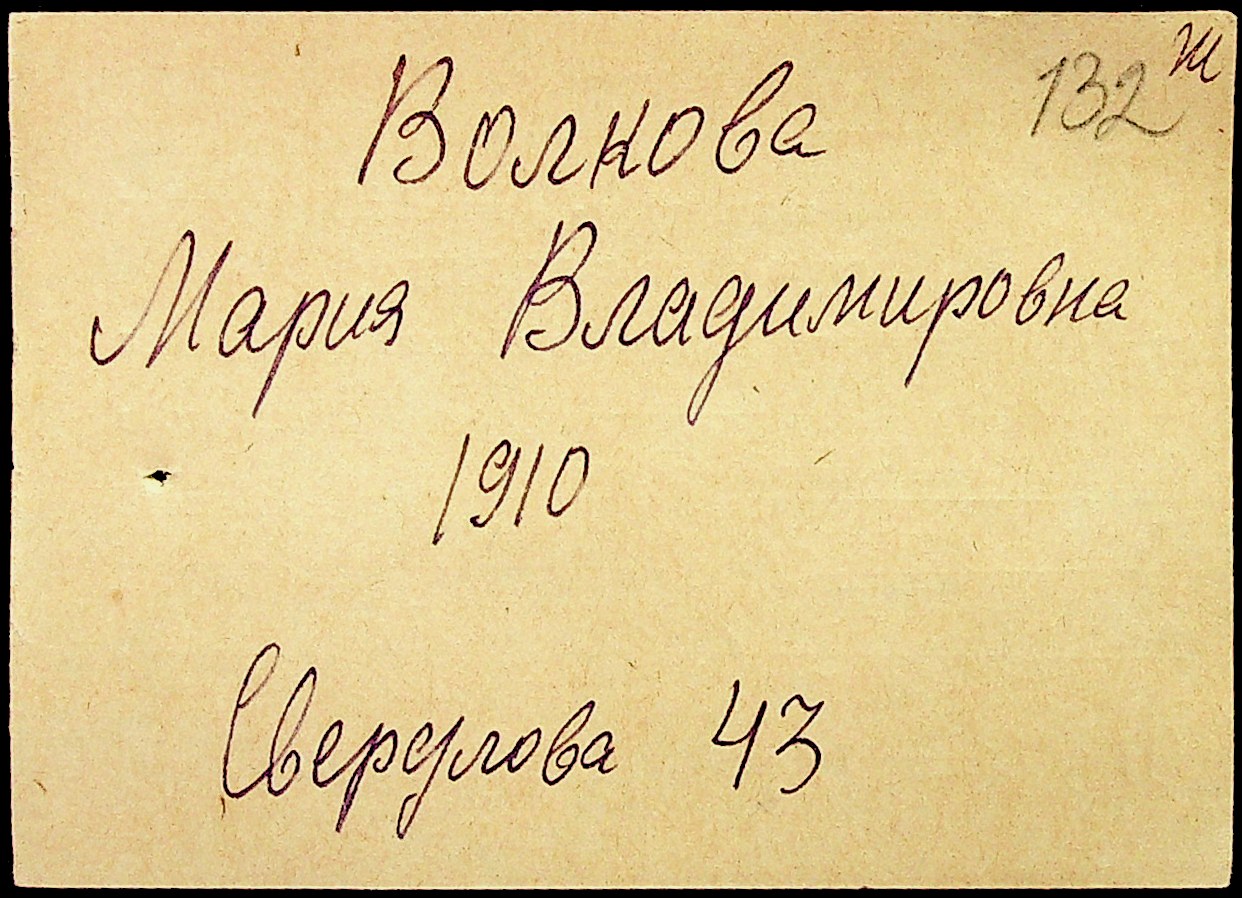 132 ж
Волкова
Мария Владимировна
1910
Свердлова 43